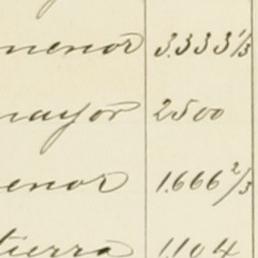 menor 3.333 1/3
mayor 2500
enor 1.666 2/3
tierra 1104